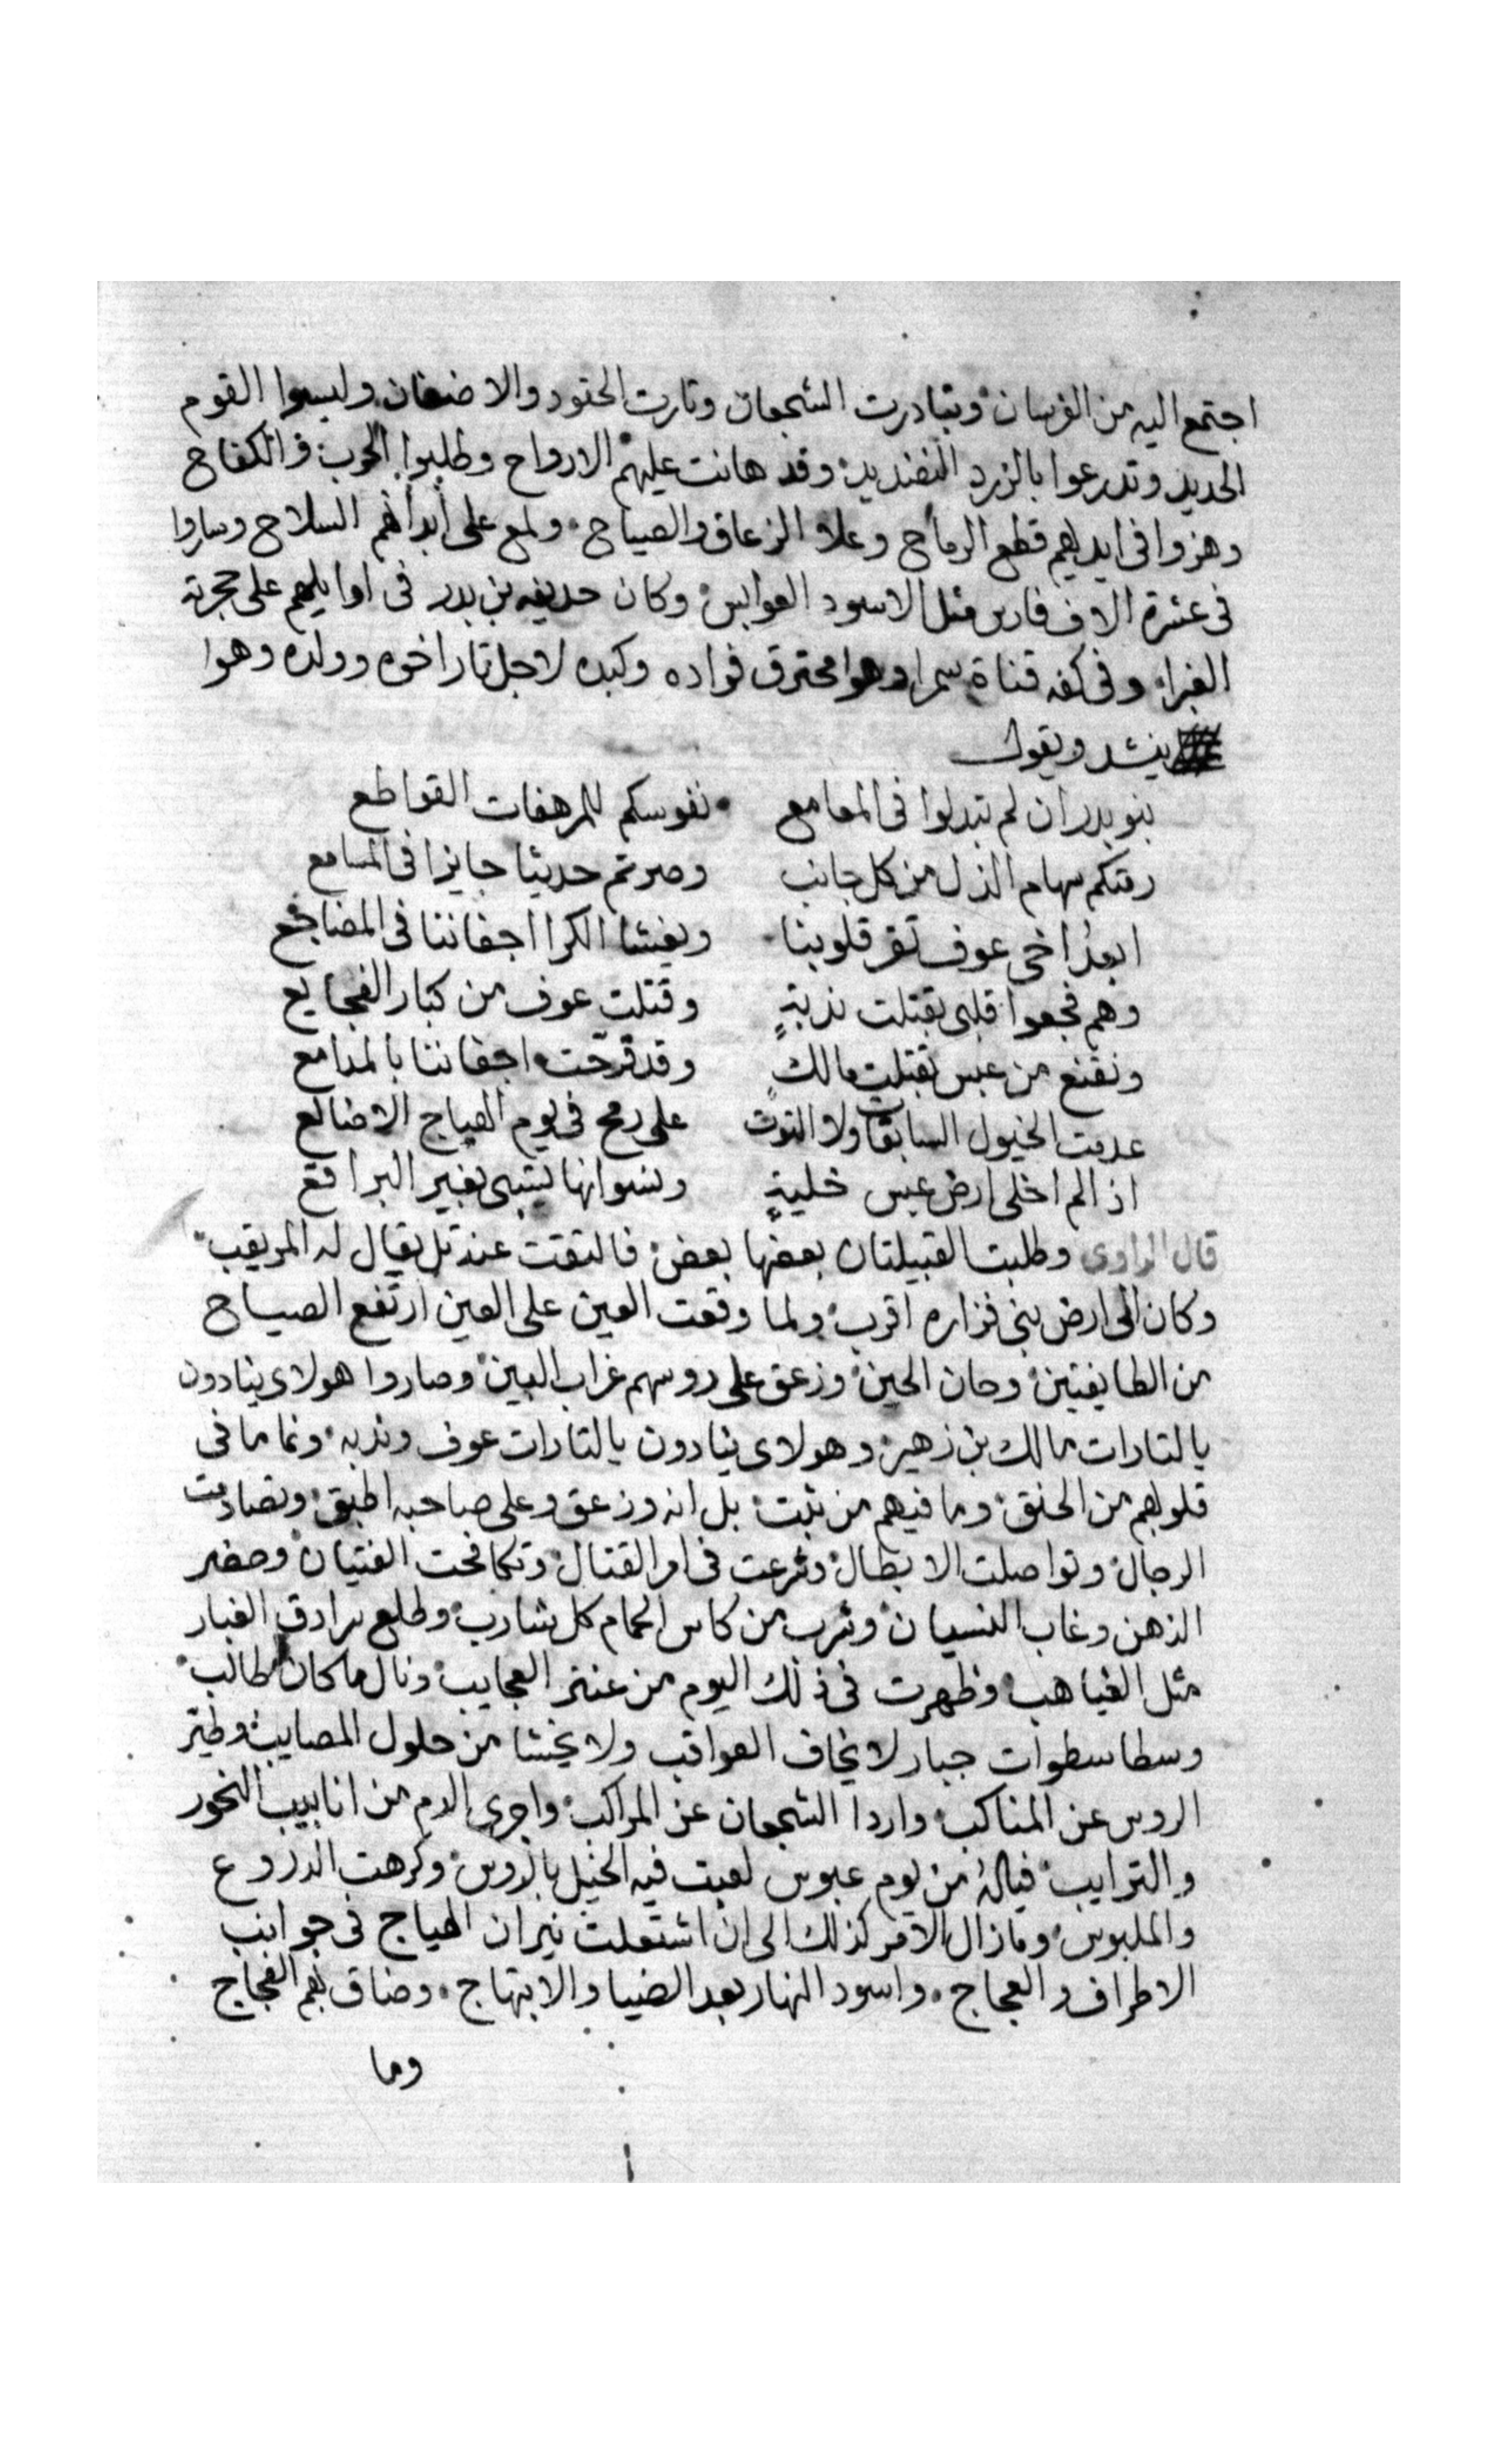 اجتمع اليه من الفرسان وتبادرت الشجعان وثارت الحقود والاضغان ولبسوا القوم
الحديد وتدرعوا بالزرد النضيد وقد هانت عليهم الارواح وطلبوا الحرب والكفاح
وهزوا فى ايديهم قطع الرماح وعلا الزعاق والصياح ولمع على أبدانهم السلاح وساروا
فى عشرة الاف فارس مثل الاسود العوابس وكان حديفه بن بدر فى اوايلهم على حجرته
الغبرا وفى كفه قناة سمرا وهوا محترق فواده وكبده لاجل تار اخوه وولده وهوا
ينشد ويقول
بنو بدر ان لم تبدلوا فى المعامع نفوسكم للمرهفات القواطع
رمتكم سهام الذل من كل جانب وصرتم حديثا جايزا فى المسامع
ابعد اخى عوف تقر قلوبنا ويغشا الكرا اجفاننا فى المضاجع
وهم فجعوا قلبى بقتلت ندبةٍ وقتلت عوف من كبار الفجايع
ونقنع من عبس بقتلت مالكٍ وقد قرّحت اجفاننا بالمدامع
عدمت الخيول السابقات ولا التوت على رمح فى يوم الهياج الاضالع
اذا لم اخلى ارض عبس خليةٍ ونسوانها تسبى بغير البراقع
قال الراوى وطلبت القبيلتان بعضها بعض فالتقت عند تل يقال له المريقب
وكان الى ارض بنى فزاره اقرب ولما وقعت العين على العين ارتفع الصياح
من الطايفتين وحان الحين وزعق على روسهم غراب البين وصاروا هولاى ينادون
يالتارات مالك بن زهير وهولاى ينادون يالتارات عوف وندبه ونما ما فى
قلوبهم من الحنق وما فيهم من ثبت بل انه وزعق وعلى صاحبه اطبق وتصادمت
الرجال وتواصلت الابطال وشرعت فى امر القتال وتكافحت الفتيان وحضر
الذهن وغاب النسيان وشرب من كاس الحمام كل شارب وطلع سرادق الغبار
مثل الغياهب وظهرت فى ذلك اليوم من عنتر العجايب ونال ما كان طالب
وسطا سطوات جبار لا يخاف العواقب ولا يخشا من حلول المصايب وطير
الروس عن المناكب واردا الشجعان عن المراكب واجرى الدم من انابيب النحور
والترايب فيالهُ من يوم عبوس لعبت فيه الخيل بالروس وكرهت الدروع
والملبوس وما زال الامر كذلك الى ان اشتعلت نيران الهياج فى جوانب
الاطراف والعجاج واسود النهار بعد الضيا والابتهاج وضاق بهم الفجاج
وما